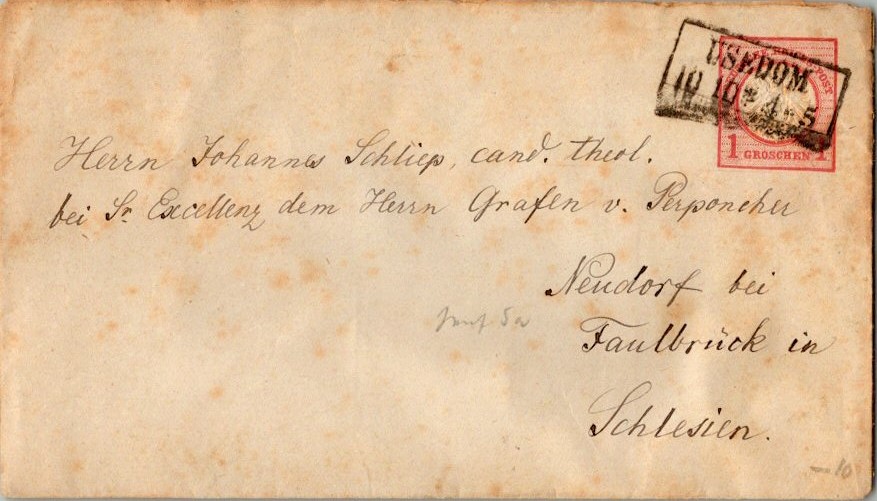 USEDOM
10 10 * 4-5
1 GROSCHEN 1
Herrn Johannes Schliep, cand. theol.
bei Sr Excellenz dem Herrn Grafen v. Perponcher
Neudorf bei
Faulbrück in
Schlesien.
—10